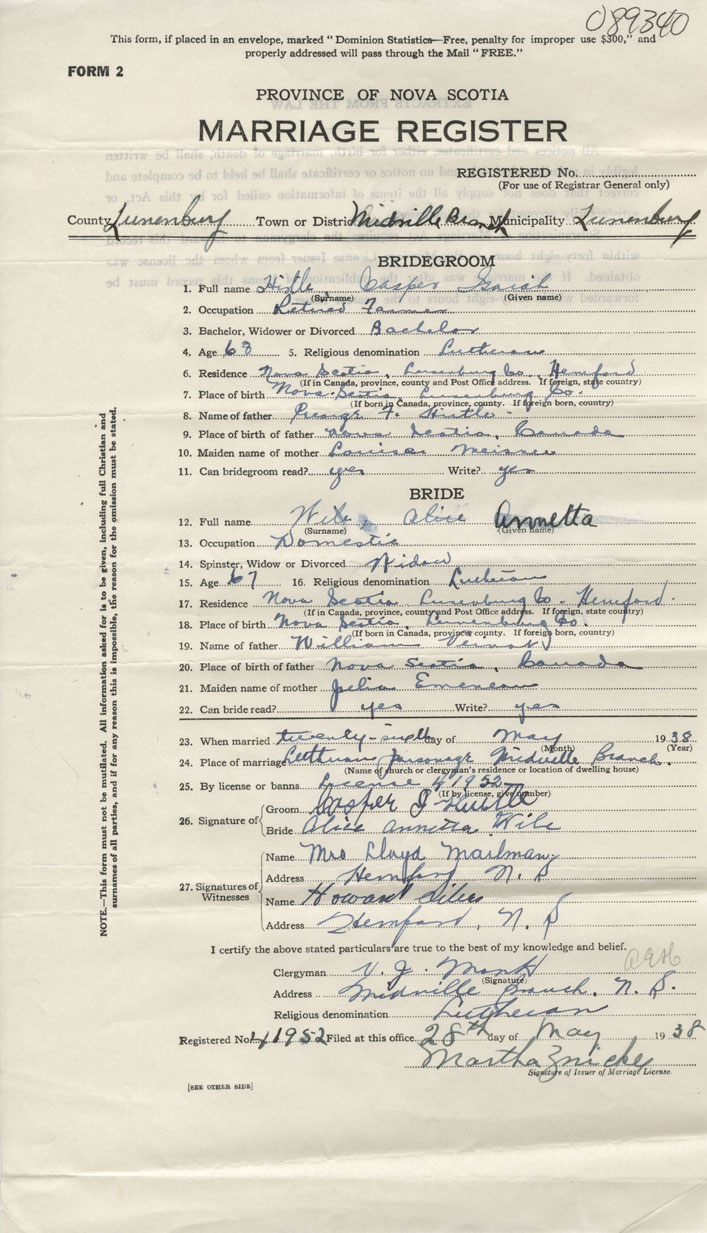 089340
This form, if placed in an envelope, marked "Dominion Statistics—Free, penalty for improper use $300," and
properly addressed will pass through the Mail "FREE."
FORM 2
PROVINCE OF NOVA SCOTIA
MARRIAGE REGISTER
REGISTERED No.
(For use of Registrar General only)
County Lunenburg Town or District Midville Branch Municipality Lunenburg
BRIDEGROOM
1. Full name Hirtle Casper
(Surname) (Given name)
2. Occupation Retired Farmer
3. Bachelor, Widower or Divorced Bachelor
4. Age 68 5. Religious denomination Lutheran
6. Residence Nova Scotia, Lunenburg Co. Hemford
(If in Canada, province, county and Post Office address. If foreign, state country)
7. Place of birth Nova Scotia, Lunenburg Co.
(If born in Canada, province, county. If foreign born, country)
8. Name of father George F. Hirtle
9. Place of birth of father Nova Scotia, Canada
10. Maiden name of mother Louisa Meisner
11. Can bridegroom read? yes Write? yes
BRIDE
12. Full name Wile, Alice Annetta
(Surname) (Given name)
13. Occupation Domestic
14. Spinster, Widow or Divorced Widow
15. Age 67 16. Religious denomination Lutheran
17. Residence Nova Scotia Lunenburg Co. Hemford.
(If in Canada, province, county and Post Office address. If foreign, state country)
18. Place of birth Nova Scotia, Lunenburg Co.
(If born in Canada, province county. If foreign born, country)
19. Name of father William
20. Place of birth of father Nova Scotia, Canada
21. Maiden name of mother Julia Emeneau
22. Can bride read? yes Write? yes
23. When married twenty-sixth day of May 1938
(Month) (Year)
24. Place of marriage Lutheran Parsonage Midville Branch.
(Name of church or clergyman's residence or location of dwelling house)
25. By license or banns License 41952
(If by license, give number)
26. Signature of
Groom Casper I Hirtle
Bride Alice Annetta Wile
27. Signatures of Witnesses
Name Mrs Lloyd Mailman
Address Hemford N. S
Name Howard
Address Hemford, N. S
I certify the above stated particulars are true to the best of my knowledge and belief.
Clergyman V. J. Monk
(Signature)
Address Midville Branch, N. S.
Religious denomination Lutheran
Registered No. 41952 Filed at this office 28th day of May 1938
Martha Zinck
Signature of Issuer of Marriage License.
[SEE OTHER SIDE]
NOTE.—This form must not be mutilated. All information asked for is to be given, including full Christian and
surnames of all parties, and if for any reason this is impossible, the reason for the omission must be stated.